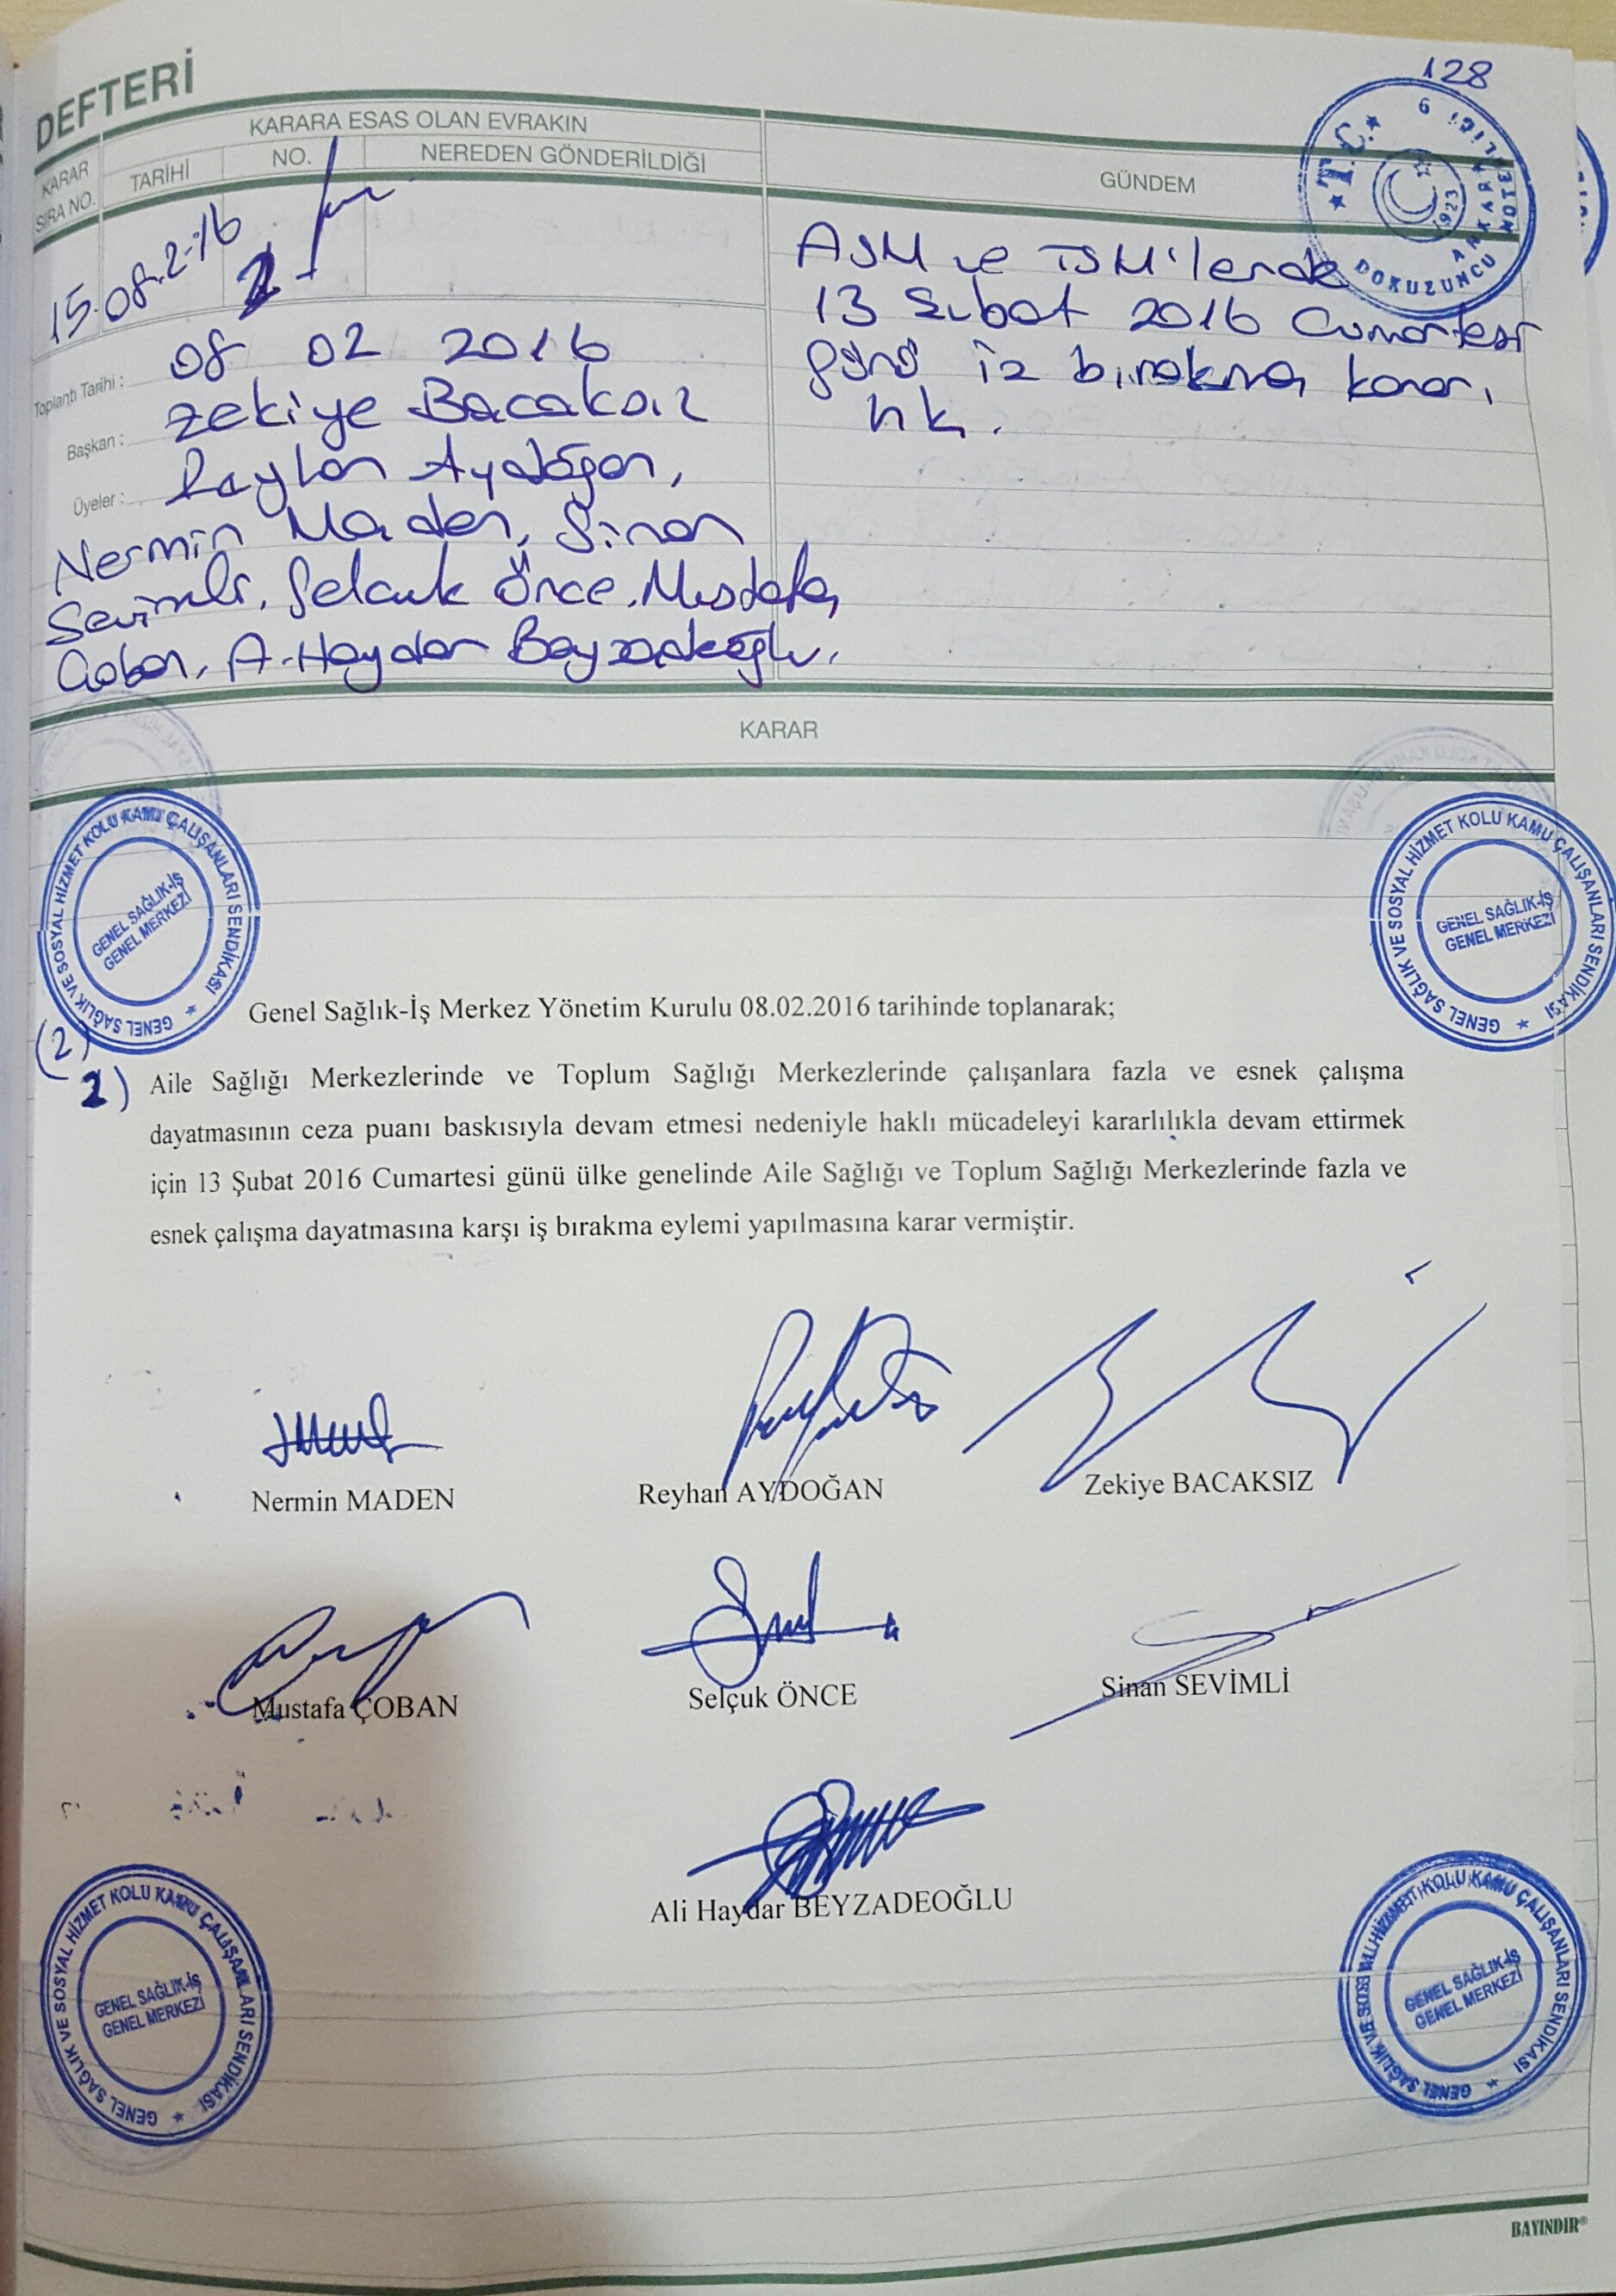 128
DEFTERİ
KARARA ESAS OLAN EVRAKIN
KARAR SIRA NO.
TARİHİ
NO.
NEREDEN GÖNDERİLDİĞİ
GÜNDEM
T.C.
ANKARA
DOKUZUNCU
1923
15.08.2-16
2
ASM ve TSM'lerde
13 Şubat 2016 Cumartesi
günü iş bırakma kararı
hk.
Toplantı Tarihi : 08 02 2016
Başkan : Zekiye Bacaksız
Üyeler : Reyhan Aydoğan,
Nermin Maden, Sinan
Sevimli, Selçuk Önce, Mustafa
Çoban, A. Haydar Beyzadeoğlu.
KARAR
GENEL SAĞLIK VE SOSYAL HİZMET KOLU KAMU ÇALIŞANLARI SENDİKASI
GENEL SAĞLIK-İŞ
GENEL MERKEZİ
GENEL SAĞLIK VE SOSYAL HİZMET KOLU KAMU ÇALIŞANLARI SENDİKASI
GENEL SAĞLIK-İŞ
GENEL MERKEZİ
Genel Sağlık-İş Merkez Yönetim Kurulu 08.02.2016 tarihinde toplanarak;
(2)
2) Aile Sağlığı Merkezlerinde ve Toplum Sağlığı Merkezlerinde çalışanlara fazla ve esnek çalışma
dayatmasının ceza puanı baskısıyla devam etmesi nedeniyle haklı mücadeleyi kararlılıkla devam ettirmek
için 13 Şubat 2016 Cumartesi günü ülke genelinde Aile Sağlığı ve Toplum Sağlığı Merkezlerinde fazla ve
esnek çalışma dayatmasına karşı iş bırakma eylemi yapılmasına karar vermiştir.
Nermin MADEN
Reyhan AYDOĞAN
Zekiye BACAKSIZ
Mustafa ÇOBAN
Selçuk ÖNCE
Sinan SEVİMLİ
Ali Haydar BEYZADEOĞLU
GENEL SAĞLIK VE SOSYAL HİZMET KOLU KAMU ÇALIŞANLARI SENDİKASI
GENEL SAĞLIK-İŞ
GENEL MERKEZİ
GENEL SAĞLIK VE SOSYAL HİZMET KOLU KAMU ÇALIŞANLARI SENDİKASI
GENEL SAĞLIK-İŞ
GENEL MERKEZİ
BAYINDIR®